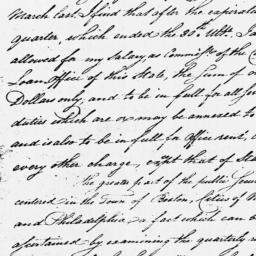 March last. I find that after the expirati
quarter, which ended the 30th Ulto.
allowed for my Salary, as Commissr. of the C
Loan Office of this State, the Sum of
Dollars only, and to be in full for all Ser
duties which are or may be annexed to
and is also to be in full for Office rent,
every other charge, except that of Sta
The greater part of the public
centered in the Town of Boston, Cities of N
and Philadelphia a fact which can b
ascertained by examining the quarterly r